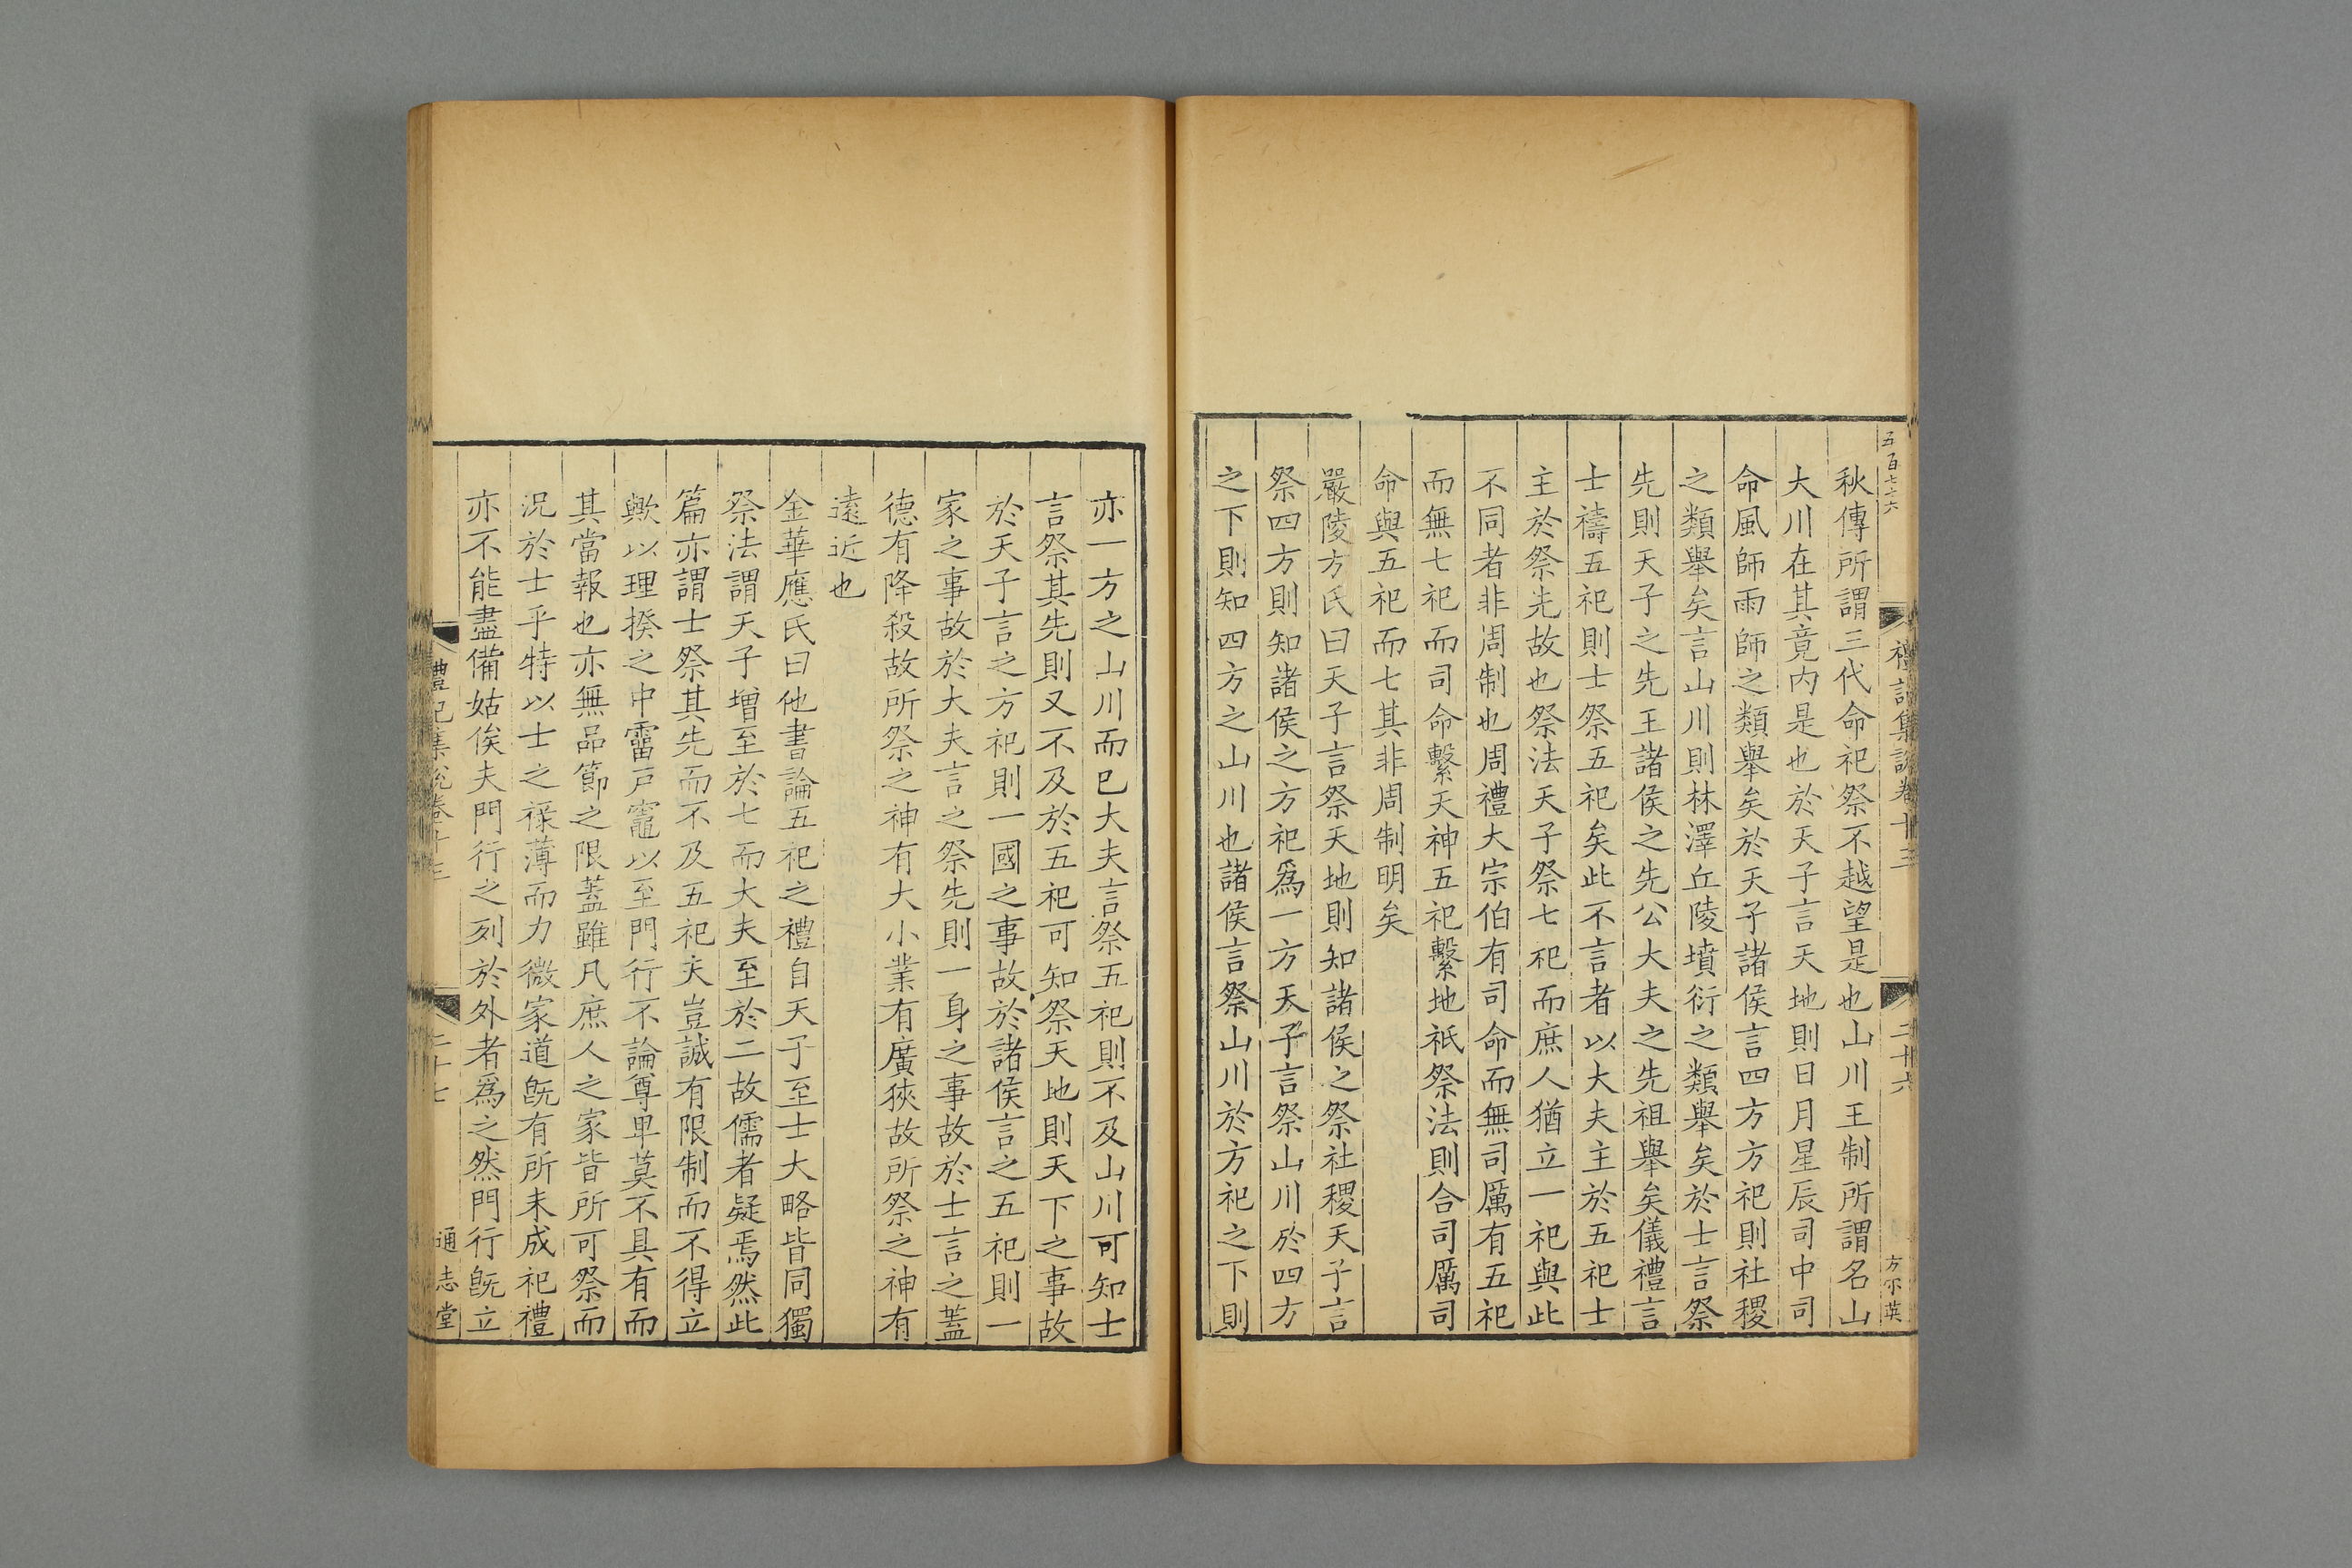 五百七十六
禮記集說卷十三
二十六
方尓英
秋傳所謂三代命祀祭不越望是也山川王制所謂名山
大川在其竟内是也於天子言天地則日月星辰司中司
命風師雨師之類舉矣於天子諸侯言四方方祀則社稷
之類舉矣言山川則林澤丘陵墳衍之類舉矣於士言祭
先則天子之先王諸侯之先公大夫之先祖舉矣儀禮言
士禱五祀則士祭五祀矣此不言者以大夫主於五祀士
主於祭先故也祭法天子祭七祀而庶人猶立一祀與此
不同者非周制也周禮大宗伯有司命而無司厲有五祀
而無七祀而司命繫天神五祀繫地祇祭法則合司厲司
命與五祀而七其非周制明矣
嚴陵方氏曰天子言祭天地則知諸侯之祭社稷天子言
祭四方則知諸侯之方祀爲一方天子言祭山川於四方
之下則知四方之山川也諸侯言祭山川於方祀之下則
亦一方之山川而已大夫言祭五祀則不及山川可知士
言祭其先則又不及於五祀可知祭天地則天下之事故
於天子言之方祀則一國之事故於諸侯言之五祀則一
家之事故於大夫言之祭先則一身之事故於士言之蓋
德有降殺故所祭之神有大小業有廣狹故所祭之神有
遠近也
金華應氏曰他書論五祀之禮自天子至士大略皆同獨
祭法謂天子增至於七而大夫至於二故儒者疑焉然此
篇亦謂士祭其先而不及五祀夫豈誠有限制而不得立
歟以理揆之中霤戸竈以至門行不論尊卑莫不具有而
其當報也亦無品節之限蓋雖凡庶人之家皆所可祭而
況於士乎特以士之祿薄而力微家道旣有所未成祀禮
亦不能盡備姑俟夫門行之列於外者爲之然門行旣立
禮記集說卷十三
二十七
通志堂